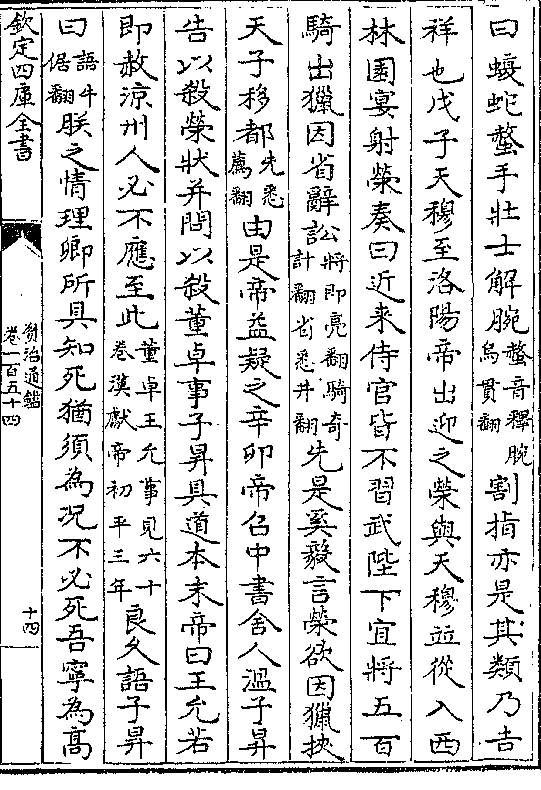 曰蝮蛇螫手壯士解腕螫音釋腕烏貫翻割指亦是其類乃吉
祥也戊子天穆至洛陽帝出迎之榮與天穆並從入西
林園宴射榮奏曰近来侍官皆不習武陛下宜將五百
騎出獵因省辭訟將即亮翻騎奇計翻省悉井翻先是奚毅言榮欲因獵挾
天子移都先悉薦翻由是帝益疑之辛卯帝召中書舍人溫子昇
告以殺榮狀并問以殺董卓事子昇具道本末帝曰王允若
即赦涼州人必不應至此董卓王允事見六十卷漢獻帝初平三年良久語子昇
曰語牛倨翻朕之情理卿所具知死猶須為况不必死吾寧為高
欽定四庫全書
資治通鑑
卷一百五十四
十四